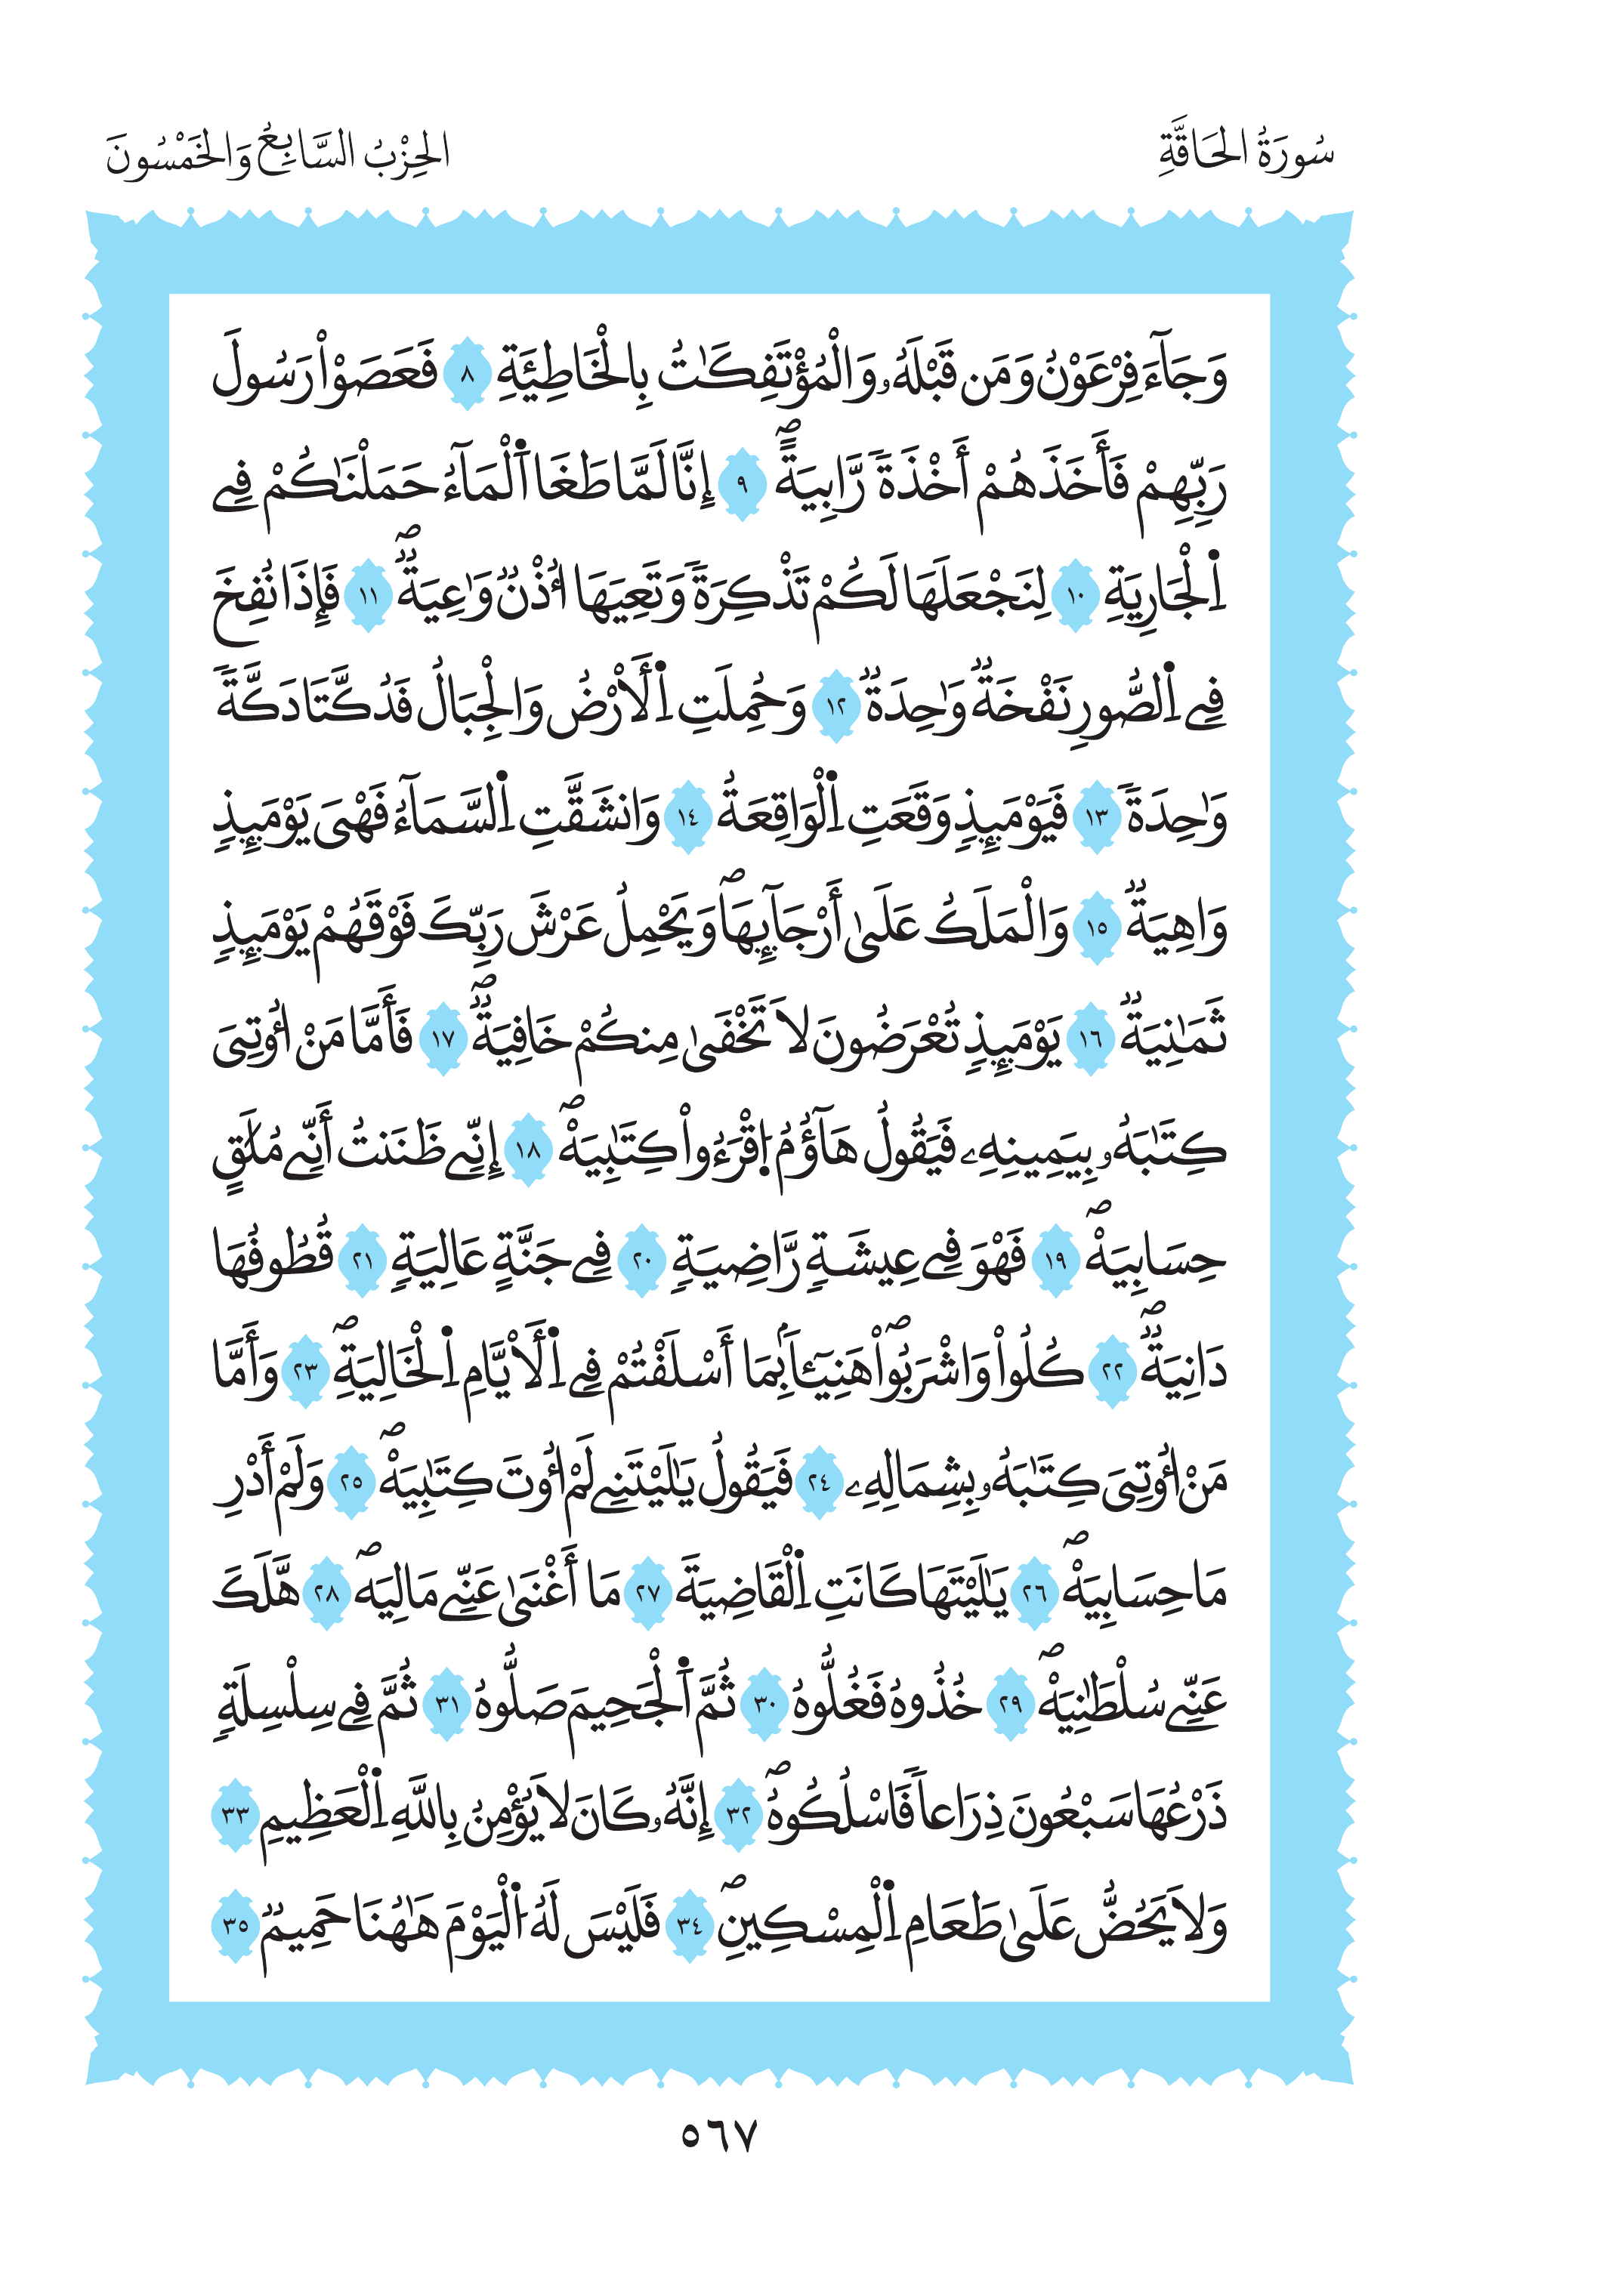 سُورَةُ الحَاقَّةِ
الحِزْبُ السَّابِعُ وَالخَمْسُونَ
وَجَآءَ فِرْعَوْنُ وَمَن قَبْلَهُۥ وَالْمُؤْتَفِكَٰتُ بِالْخَاطِئَةِ ٨ فَعَصَوْاْ رَسُولَ
رَبِّهِمْ فَأَخَذَهُمْ أَخْذَةٗ رَّابِيَةًۖ ٩ إِنَّا لَمَّا طَغَا اَ۬لْمَآءُ حَمَلْنَٰكُمْ فِے
اِ۬لْجَارِيَةِ ١٠ لِنَجْعَلَهَا لَكُمْ تَذْكِرَةٗ وَتَعِيَهَا أُذْنٞ وَٰعِيَةٞۖ ١١ فَإِذَا نُفِخَ
فِے اِ۬لصُّورِ نَفْخَةٞ وَٰحِدَةٞ ١٢ وَحُمِلَتِ اِ۬لَارْضُ وَالْجِبَالُ فَدُكَّتَا دَكَّةٗ
وَٰحِدَةٗ ١٣ فَيَوْمَئِذٖ وَقَعَتِ اِ۬لْوَاقِعَةُ ١٤ وَانشَقَّتِ اِ۬لسَّمَآءُ فَهْىَ يَوْمَئِذٖ
وَاهِيَةٞ ١٥ وَالْمَلَكُ عَلَىٰٓ أَرْجَآئِهَاۖ وَيَحْمِلُ عَرْشَ رَبِّكَ فَوْقَهُمْ يَوْمَئِذٖ
ثَمَٰنِيَةٞ ١٦ يَوْمَئِذٖ تُعْرَضُونَ لَا تَخْفَىٰ مِنكُمْ خَافِيَةٞۖ ١٧ فَأَمَّا مَنْ أُوتِىَ
كِتَٰبَهُۥ بِيَمِينِهِۦ فَيَقُولُ هَآؤُمُ اُ۪قْرَءُواْ كِتَٰبِيَهْۖ ١٨ إِنِّے ظَنَنتُ أَنِّے مُلَٰقٍ
حِسَابِيَهْۖ ١٩ فَهْوَ فِے عِيشَةٖ رَّاضِيَةٖ ٢٠ فِے جَنَّةٍ عَالِيَةٖ ٢١ قُطُوفُهَا
دَانِيَةٞۖ ٢٢ كُلُواْ وَاشْرَبُواْۖ هَنِيٓـٔاَۢ بِمَا أَسْلَفْتُمْ فِے اِ۬لَايَّامِ اِ۬لْخَالِيَةِۖ ٢٣ وَأَمَّا
مَنْ أُوتِىَ كِتَٰبَهُۥ بِشِمَالِهِۦ ٢٤ فَيَقُولُ يَٰلَيْتَنِے لَمْ أُوتَ كِتَٰبِيَهْۖ ٢٥ وَلَمْ أَدْرِ
مَا حِسَابِيَهْۖ ٢٦ يَٰلَيْتَهَا كَانَتِ اِ۬لْقَاضِيَةَ ٢٧ مَا أَغْنَىٰ عَنِّے مَالِيَهۖ ٢٨ هَّلَكَ
عَنِّے سُلْطَٰنِيَهْۖ ٢٩ خُذُوهُ فَغُلُّوهُ ٣٠ ثُمَّ اَ۬لْجَحِيمَ صَلُّوهُ ٣١ ثُمَّ فِے سِلْسِلَةٖ
ذَرْعُهَا سَبْعُونَ ذِرَاعاٗ فَاسْلُكُوهُۖ ٣٢ إِنَّهُۥ كَانَ لَا يُؤْمِنُ بِاللَّهِ اِ۬لْعَظِيمِ ٣٣
وَلَا يَحُضُّ عَلَىٰ طَعَامِ اِ۬لْمِسْكِينِۖ ٣٤ فَلَيْسَ لَهُ اُ۬لْيَوْمَ هَٰهُنَا حَمِيمٞ ٣٥
٥٦٧